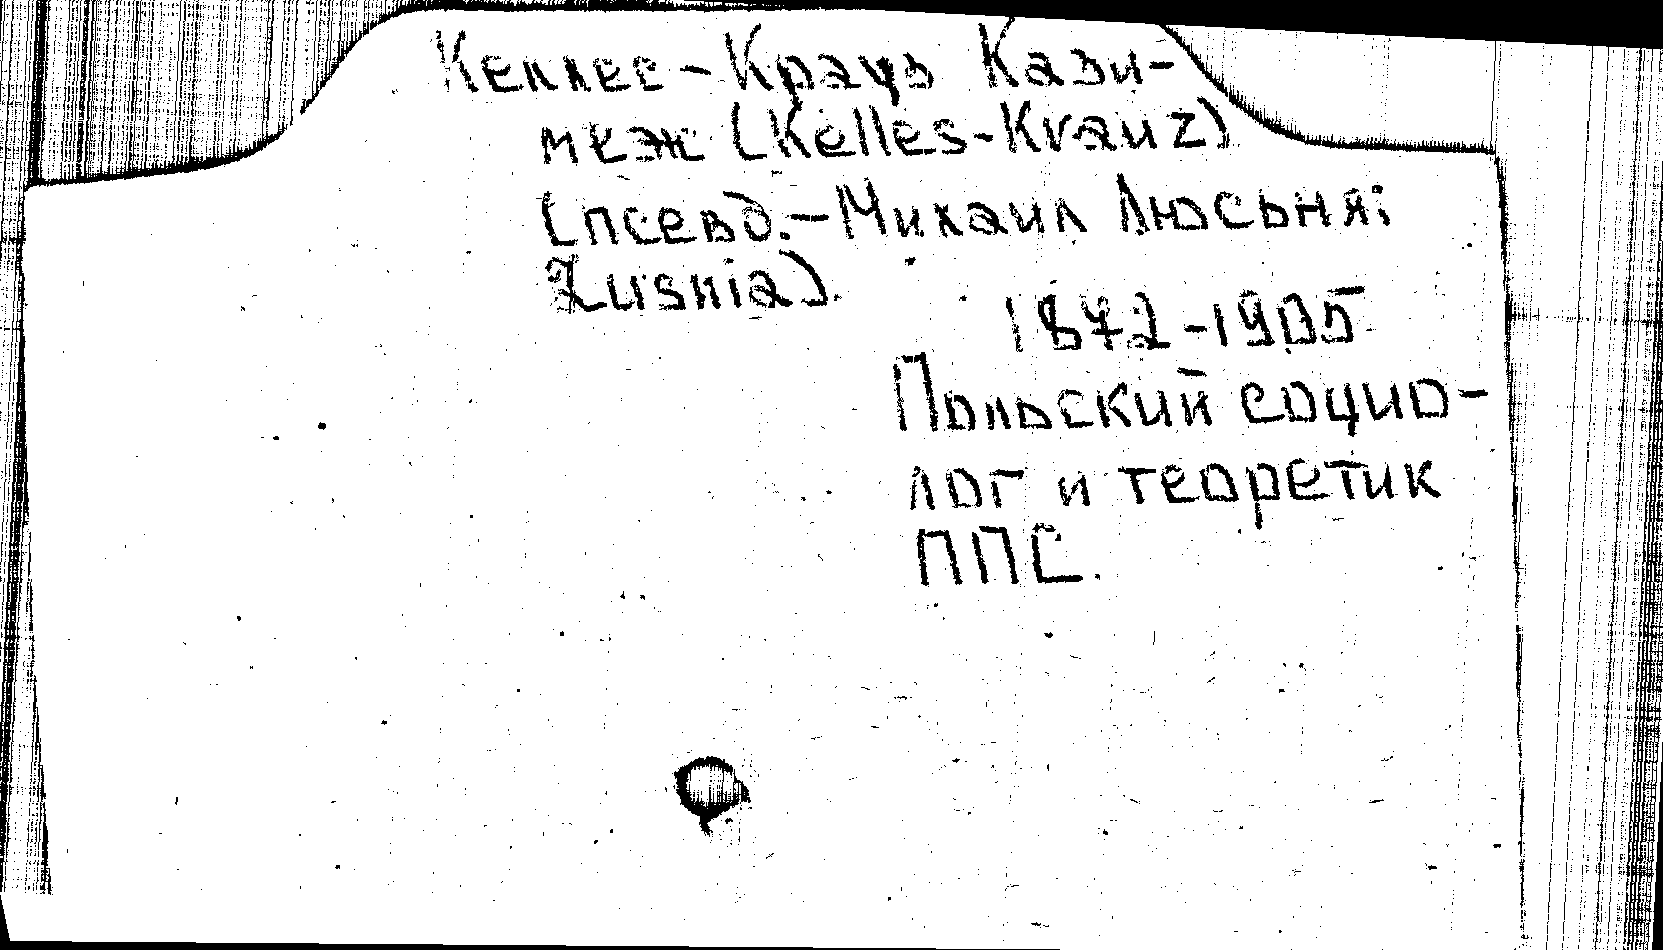 Келлес-Крауз Кази-
меж (Kelles-Krauz)
(псевд.-Михаил Люсьня;
Lusnia).
1872-1905
Польский социо-
лог и теоретик
ППС.